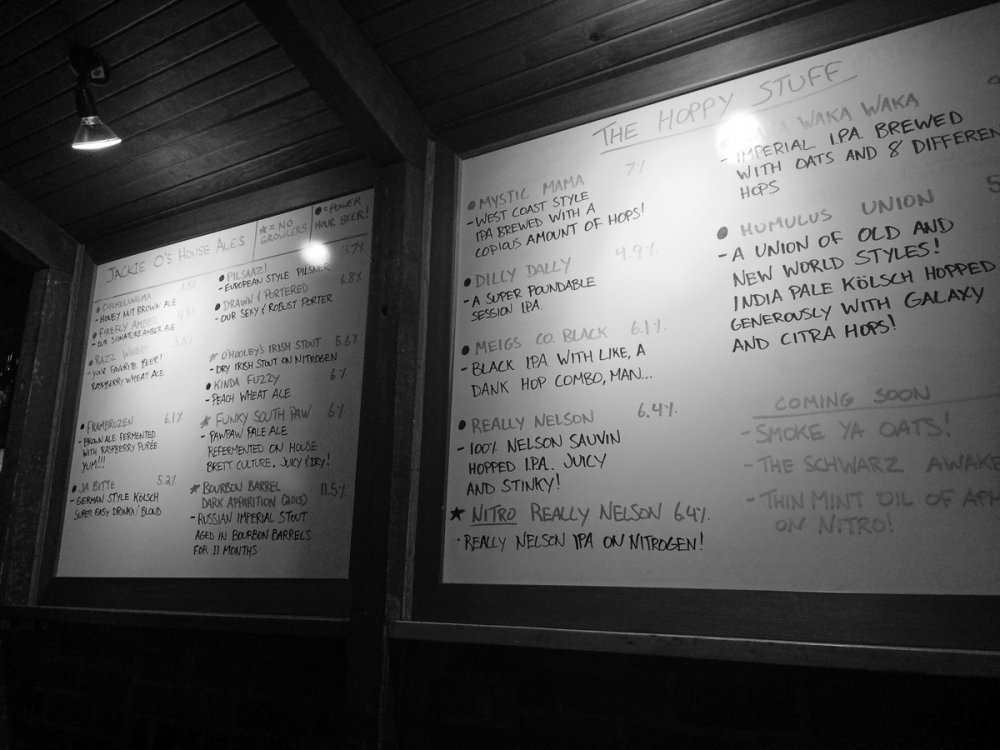 JACKIE O'S HOUSE ALES
★ = NO GROWLERS
● = POWER HOUR BEER!
● CHOMOLUNGMA
- HONEY NUT BROWN ALE
● FIREFLY AMBER 4.5%
- OUR SIGNATURE AMBER ALE
● RAZZ WHEAT 5.5%
- YOUR FAVORITE BEER!
RASPBERRY WHEAT ALE
● FRAMBRUZEN 6.1%
- BROWN ALE FERMENTED
WITH RASPBERRY PURÉE
YUM!!!
● JA BITTE 5.2%
- GERMAN STYLE KÖLSCH
SUPER EASY DRINKA' BLOND
● PILSAAZ! 4.7%
- EUROPEAN STYLE PILSNER
● DRAWN & PORTERED 6.8%
- OUR SEXY & ROBUST PORTER
★ O'HOOLEY'S IRISH STOUT 5.6%
- DRY IRISH STOUT ON NITROGEN
● KINDA FUZZY 6%
- PEACH WHEAT ALE
★ FUNKY SOUTH PAW 6%
- PAWPAW PALE ALE
REFERMENTED ON HOUSE
BRETT CULTURE. JUICY & DRY!
★ BOURBON BARREL
DARK APPARITION (2015) 11.5%
- RUSSIAN IMPERIAL STOUT
AGED IN BOURBON BARRELS
FOR 11 MONTHS
THE HOPPY STUFF
● MYSTIC MAMA 7%
- WEST COAST STYLE
IPA BREWED WITH A
COPIOUS AMOUNT OF HOPS!
● DILLY DALLY 4.9%
- A SUPER POUNDABLE
SESSION IPA.
● MEIGS CO. BLACK 6.1%
- BLACK IPA WITH LIKE, A
DANK HOP COMBO, MAN...
● REALLY NELSON 6.4%
- 100% NELSON SAUVIN
HOPPED I.P.A. JUICY
AND STINKY!
★ NITRO REALLY NELSON 6.4%
- REALLY NELSON IPA ON NITROGEN!
WAKA WAKA
- IMPERIAL I.P.A. BREWED
WITH OATS AND 8 DIFFEREN
HOPS
● HUMULUS UNION
- A UNION OF OLD AND
NEW WORLD STYLES!
INDIA PALE KÖLSCH HOPPED
GENEROUSLY WITH GALAXY
AND CITRA HOPS!
COMING SOON
- SMOKE YA OATS!
- THE SCHWARZ AWAKE
- THIN MINT OIL OF APH
ON NITRO!